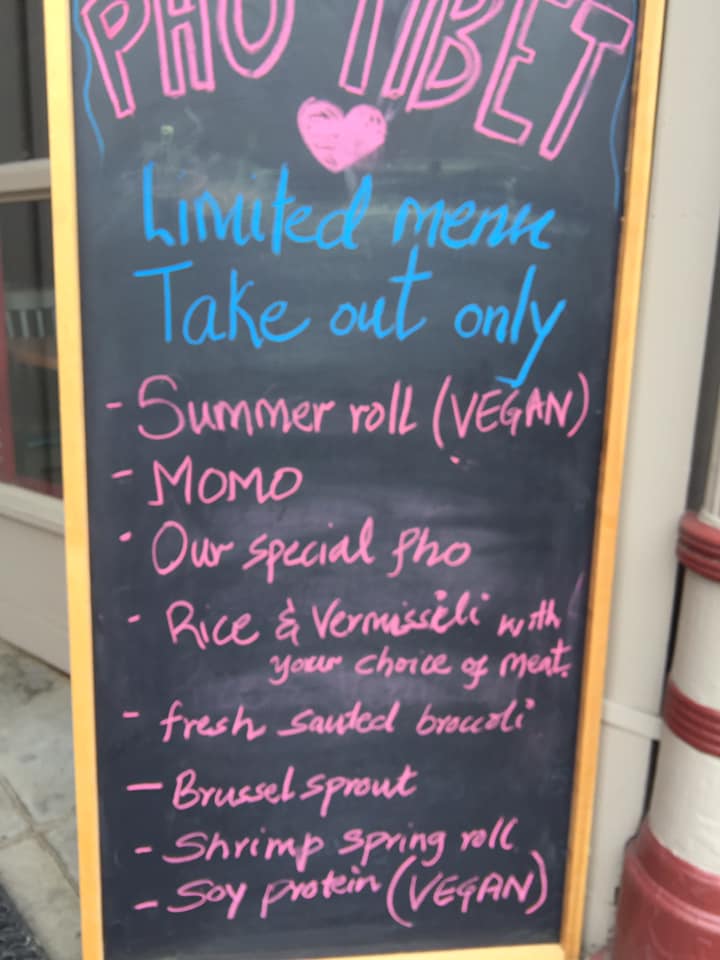 PHO TIBET
Limited menu
Take out only
- Summer roll (VEGAN)
- MOMO
- Our special pho
- Rice & Vermisseli with
your choice of meat.
- fresh sauted broccoli
- Brussel sprout
- Shrimp spring roll
- Soy protein (VEGAN)